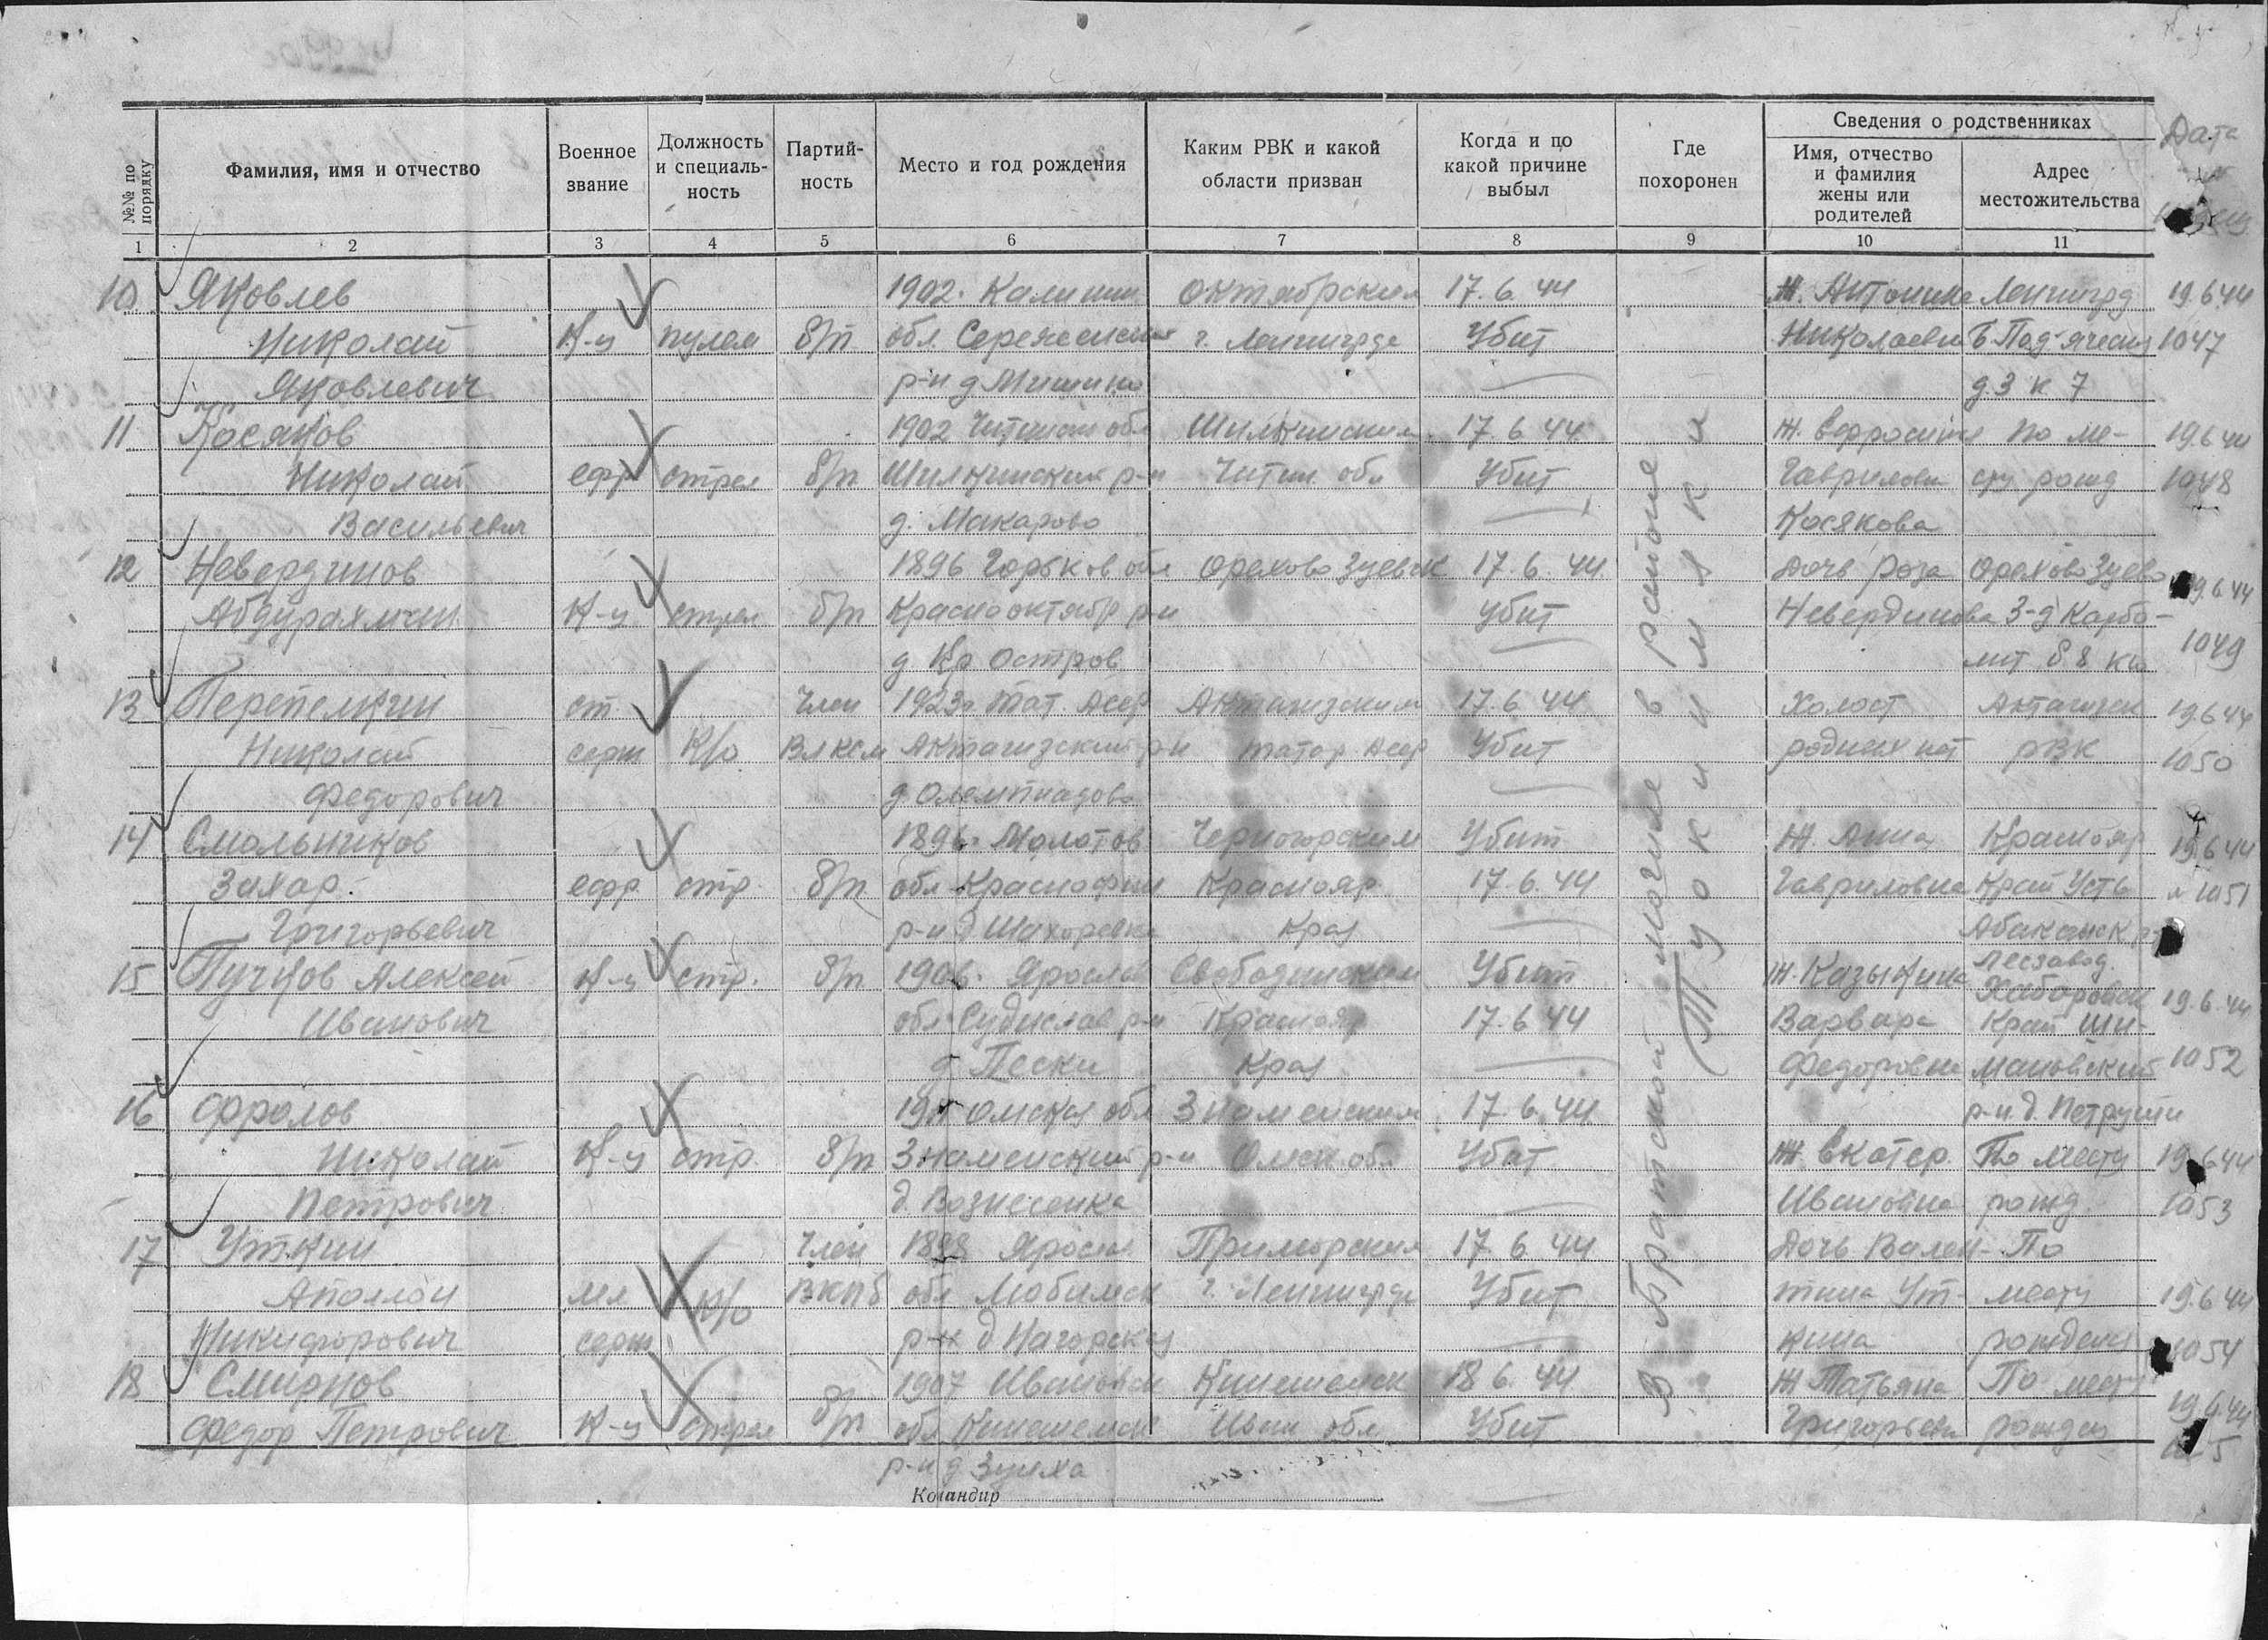 №№ по порядку
Фамилия, имя и отчество
Военное звание
Должность и специаль-ность
Партий-ность
Место и год рождения
Каким РВК и какой области призван
Когда и по какой причине выбыл
Где похоронен
Сведения о родственниках
Имя, отчество и фамилия жены или родителей
Адрес местожительства
Дата
1 2 3 4 5 6 7 8 9 10 11
10 Яковлев 1902. Калинин Октябрским 17.6.44 Ж. Антонина Ленингрд 19.6.44
Николай К-ц пулем б/п обл. г. Ленинграда Убит Николаевн Б. Под'яческ 1047
Яковлевич р-н д Мишино д.3 к 7
11 Косяков 1902 Читинск обл Шилкинским 17.6.44 Ж. Ефросинья по ме- 19.6.44
Николай ефр стрел б/п Шилкинский р-н Читин. обл Убит Гавриловн сту рожд 1048
Васильевич д. Макарово Косякова
12 Невердинов 1896 Горьков обл Орехово Зуевск 17.6.44 Дочь Роза Орехово Зуево 19.6.44
Абдурахман К-ц стрел б/п Краснооктябр р-н Убит Невердинова З-д Карбо-
д. Кр Остров лит б 8 кв 1049
13 Перепелкин ст. Член 1923г. Тат. Асср Актанизским 17.6.44 Холост Актанизск 19.6.44
Николай серж К/о Влксм Актанизский р-н татар Асср Убит родных нет РВК 1050
Федорович д Олемпиадово
14 Смольников 1896. Молотов Черногорским Убит Ж. Анна Краснояр 19.6.44
Захар. ефр. стр. б/п обл Краснофим Краснояр 17.6.44 Гавриловна Край Усть 1051
Григорьевич р-н д Края Абаканск р-н
15 Пучков Алексей К-ц стр. б/п Ярослав Свободненским Убит Ж. Казыкина Лесзавод. Хабаровск 19.6.44
Иванович обл. Судислав р-н Краснояр 17.6.44 Варвара Край Ши-
д Пески Края Федоровна мановский 1052
16 Фролов Омская обл Знаменским 17.6.44 р-н. д. Петруши
Николай К-ц стр. б/п Знаменский р-н Омск обл Убит Ж Екатер. По месту 19.6.44
Петрович д. Вознесенка Ивановна рожд. 1053
17 Уткин Член Яросл Приморским 17.6.44 Дочь Вален- По
Аполлон мл К/о ВКПб обл Любимск г. Ленинграда Убит тина Ут- месту 19.6.44
Никифорович серж р-н д Нагорская кина рожден 1054
18 Смирнов 1907 Ивановск Кинешемск 18.6.44 Ж Татьяна По мест 19.6.44
Федор Петрович К-ц стрел б/п обл Кинешемск Иван обл Убит Григорьевн рожден
р-н д Зуиха
В братской могиле в районе
Командир